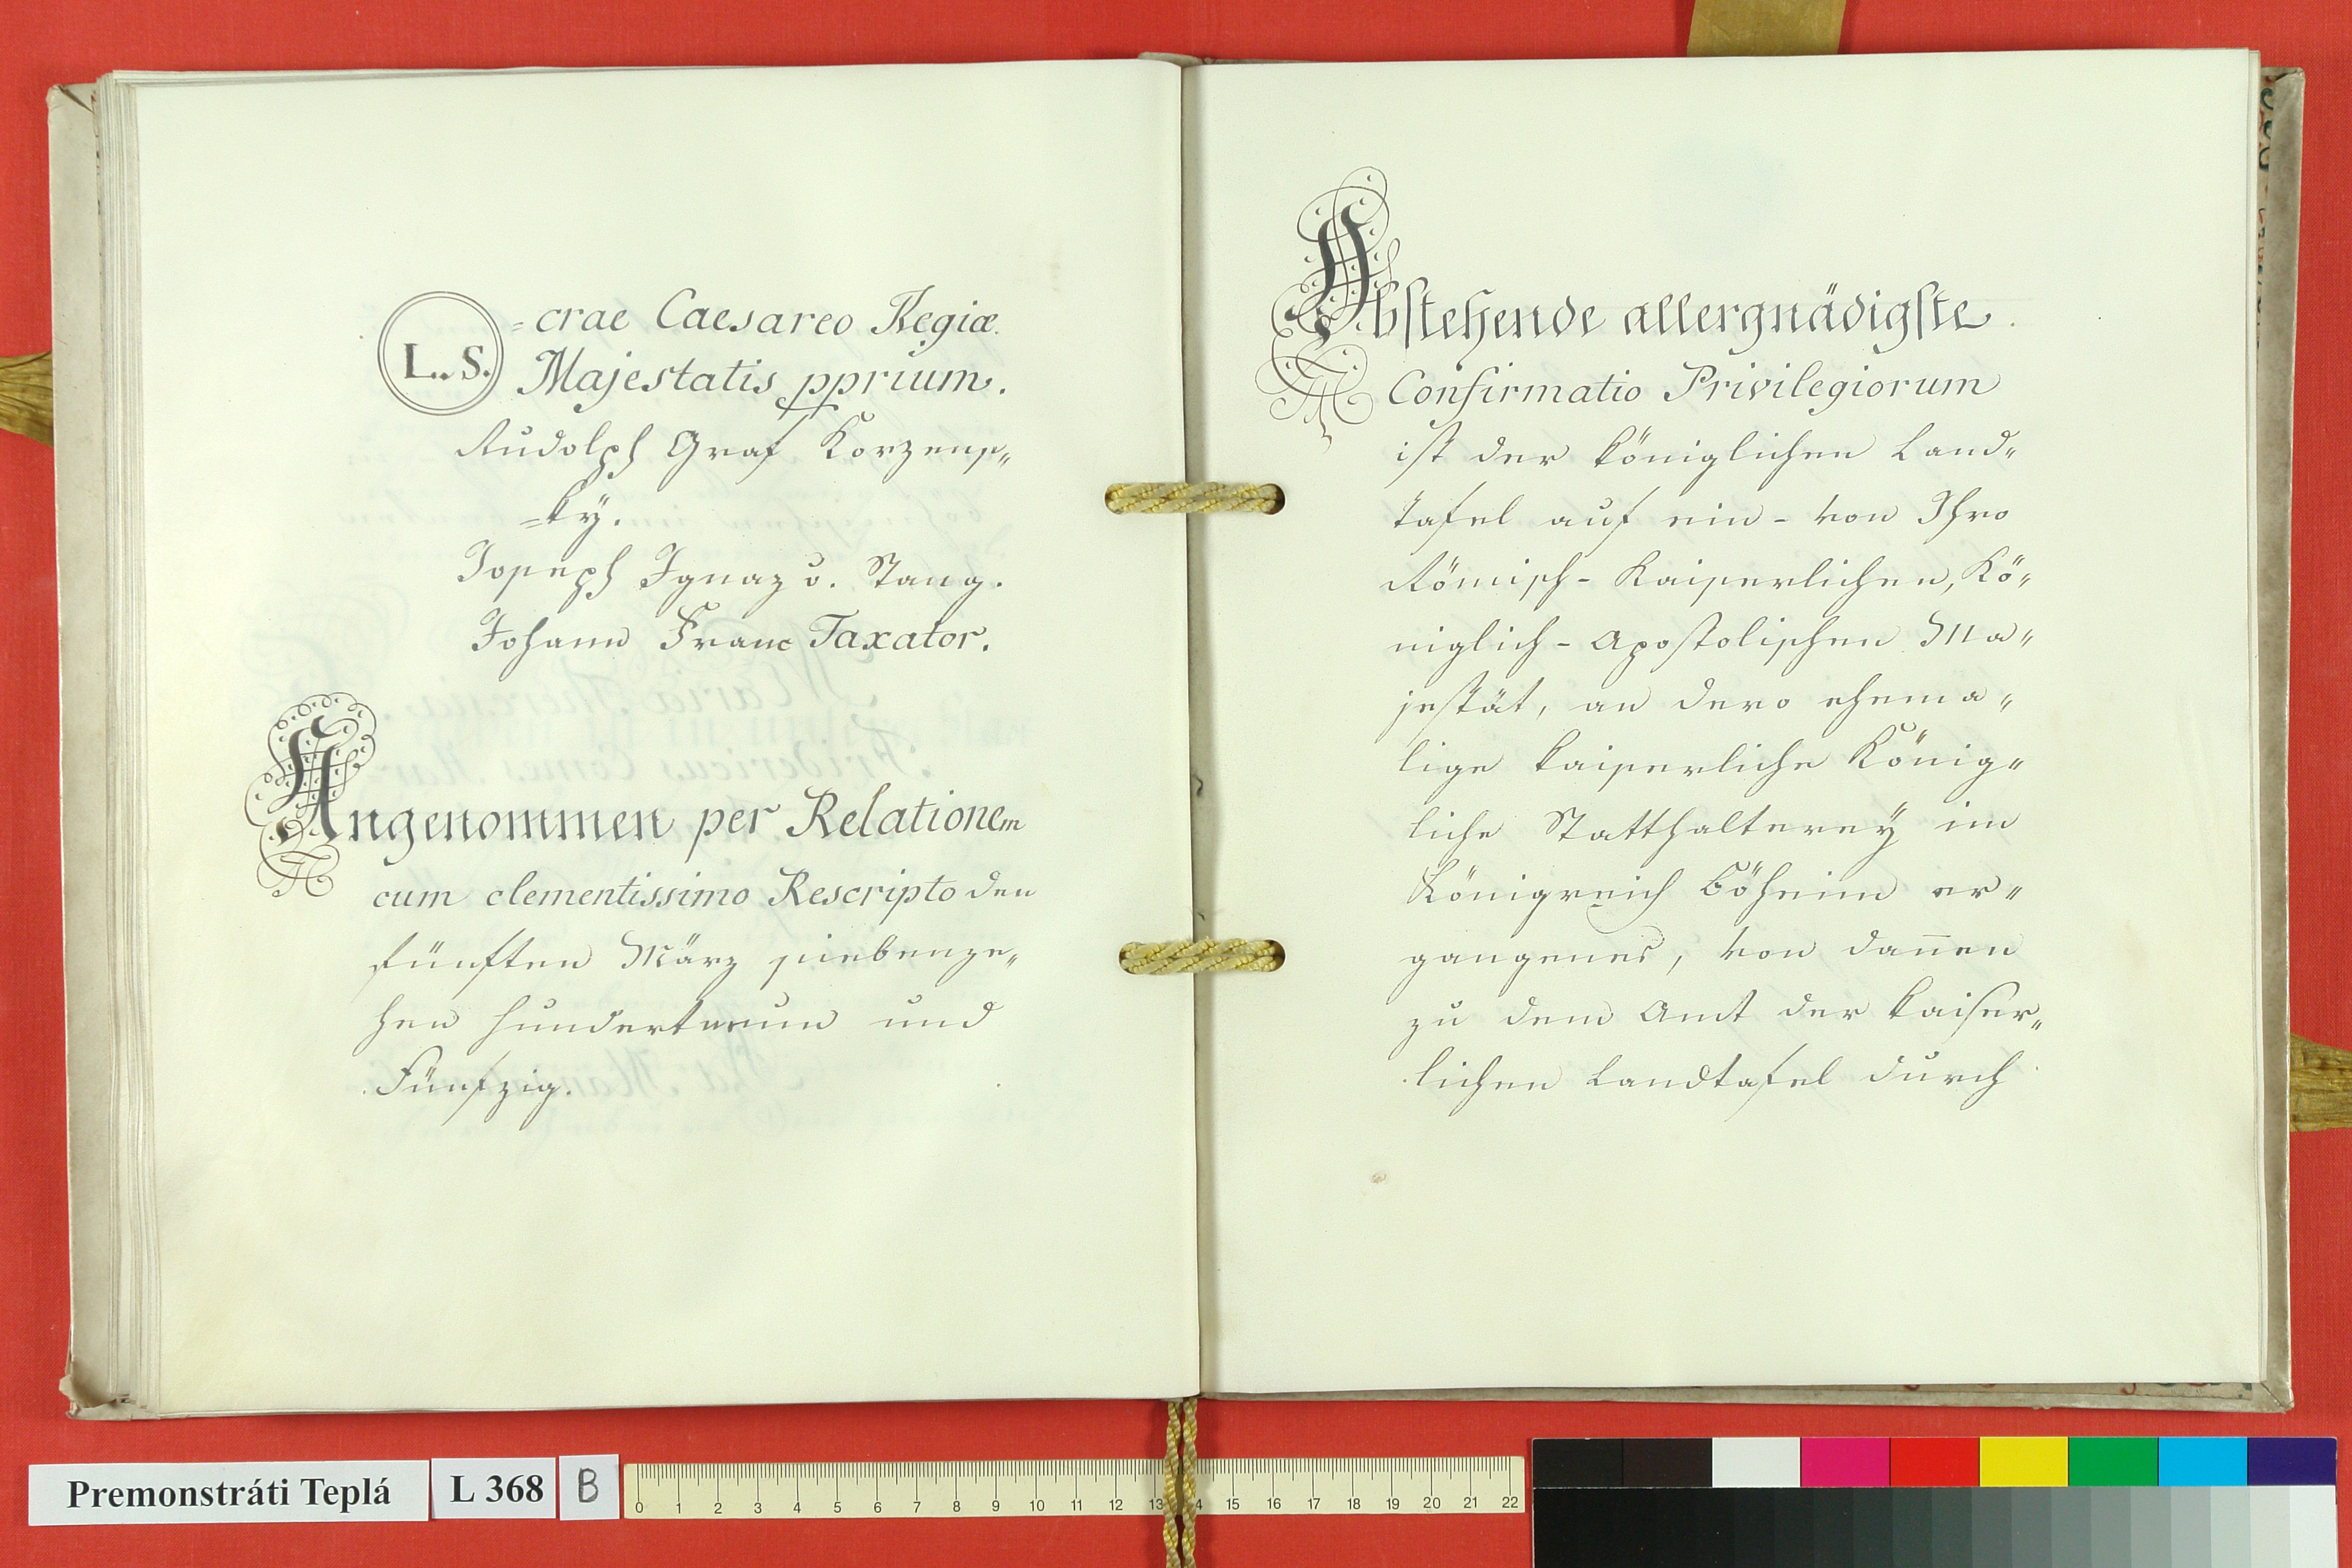 L. S.
=crae Caesareo Regiæ
Majestatis pprium.
Rudolph Graf Korzens„
=ky.
Joseph Ignaz v. Stang.
Johann Franc Taxator.
Angenommen per Relationem
cum clementissimo Rescripto den
fünften März siebenze„
hen hundert neun und
Fünfzig.
Abstehende allergnädigste
Confirmatio Privilegiorum
ist der königlichen Land„
tafel auf ein - von Ihro
Römisch - Kaiserlichen, Kö„
niglich - Apostolischen Ma„
jestät, an dero ehema„
lige kaiserliche König„
liche Statthalterey im
Königreich Böheim er„
gangenes, von dan̄en
zu dem Amt der kaiser„
lichen Landtafel durch
Premonstráti Teplá
L 368
B
0 1 2 3 4 5 6 7 8 9 10 11 12 13 4 15 16 17 18 19 20 21 22